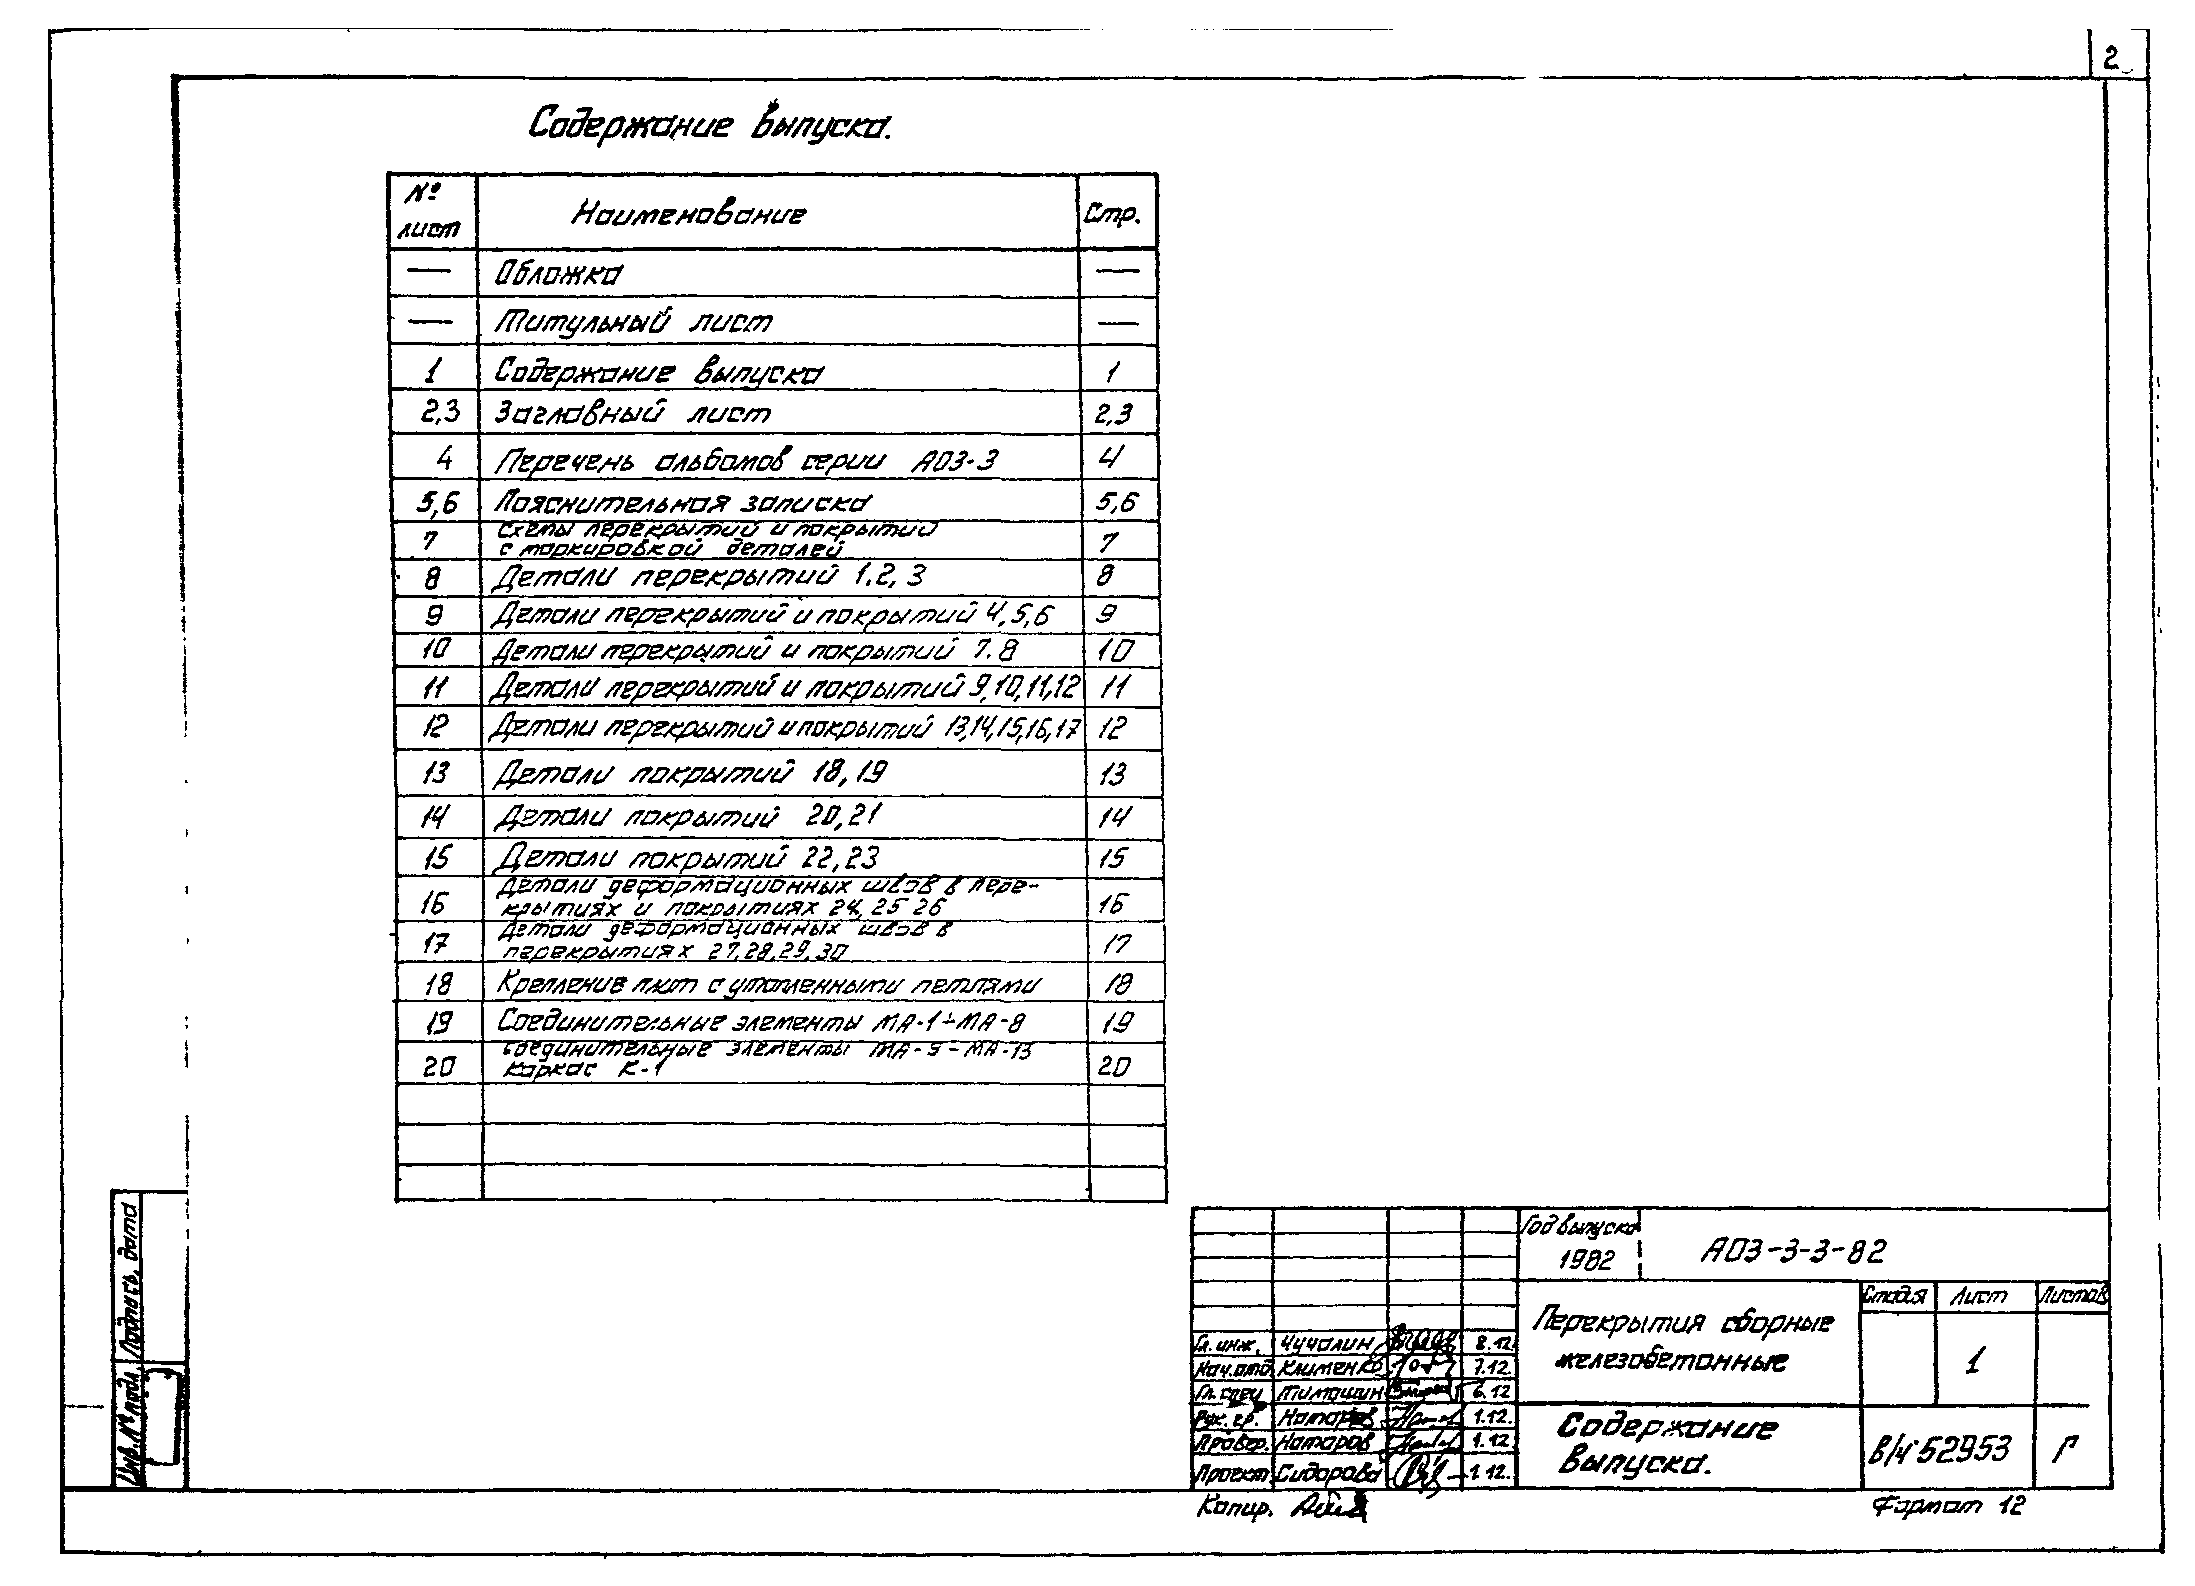 2
Содержание выпуска.
№ лист Наименование Стр.
— Обложка —
— Титульный лист —
1 Содержание выпуска 1
2,3 Заглавный лист 2,3
4 Перечень альбомов серии А03-3 4
5,6 Пояснительная записка 5,6
7 Схемы перекрытий и покрытий 7
с маркировкой деталей
8 Детали перекрытий 1.2,3 8
9 Детали перекрытий и покрытий 4,5,6 9
10 Детали перекрытий и покрытий 7.8 10
11 Детали перекрытий и покрытий 9,10,11,12 11
12 Детали перекрытий и покрытий 13,14,15,16,17 12
13 Детали покрытий 18,19 13
14 Детали покрытий 20,21 14
15 Детали покрытий 22,23 15
16 Детали деформационных швов в пере- 16
крытиях и покрытиях 24, 25 26
17 Детали деформационных швов в 17
перекрытиях 27,28,29,30
18 Крепление плит с утопленными петлями 18
19 Соединительные элементы МА-1÷МА-8 19
20 Соединительные элементы МА-9-МА-13 20
Каркас К-1
Инв.№ подл. Подпись, дата
Год выпуска
1982
А03-3-3-82
Перекрытия сборные
железобетонные
Стадия Лист Листов
1
Гл. инж. Чучалин 8.12.
Нач.отд Клименко 7.12.
Гл. спец Тимашин 6.12
Рук. гр. Натаров 1.12.
Провер. Натаров 1.12
Проект Сидорова 1.12.
Содержание
выпуска.
в/ч 52953 Г
Копир.
Формат 12